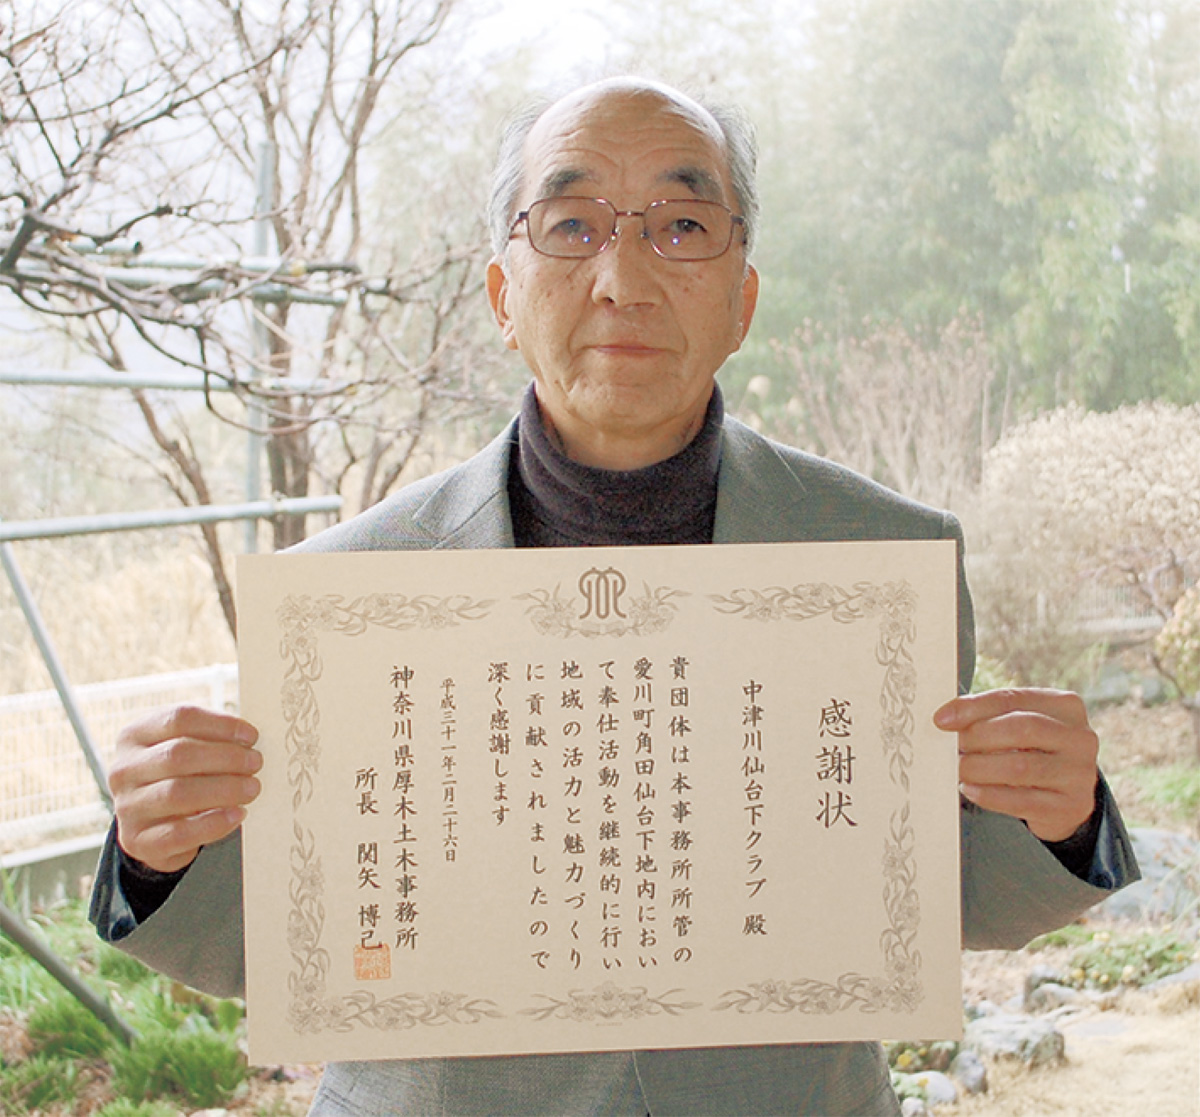 感謝状
中津川仙台下クラブ 殿
貴団体は本事務所所管の
愛川町角田仙台下地内におい
て奉仕活動を継続的に行い
地域の活力と魅力づくり
に貢献されましたので
深く感謝します
平成三十一年二月二十六日
神奈川県厚木土木事務所
所長 関矢 博己